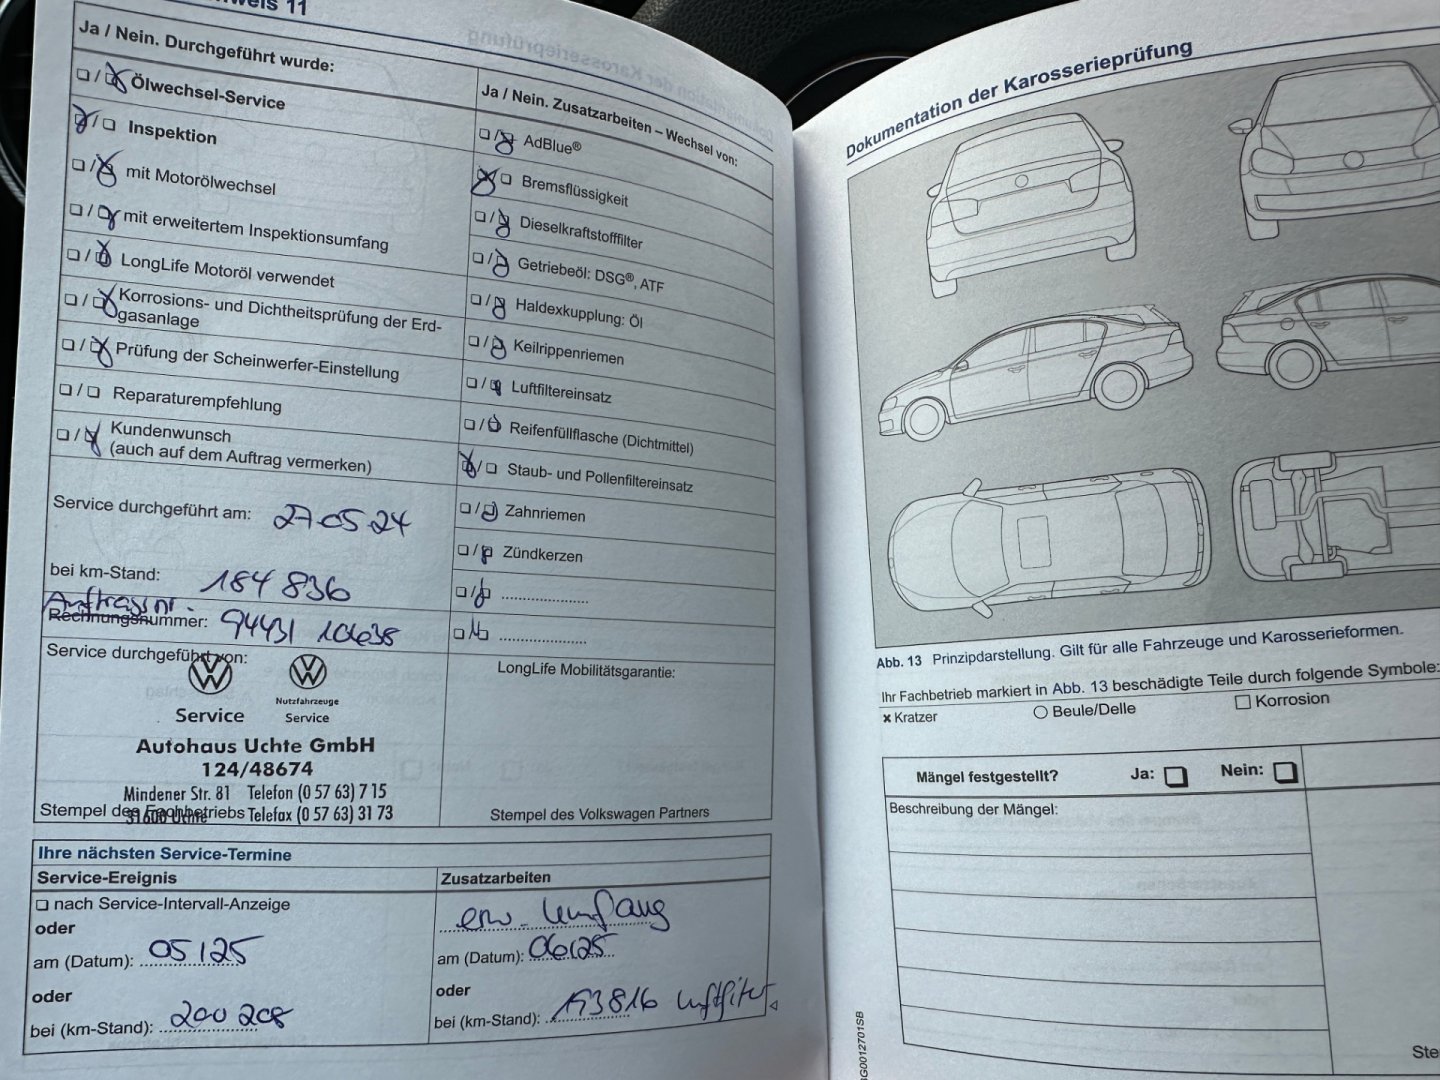 11
Ja / Nein. Durchgeführt wurde:
Ölwechsel-Service
Inspektion
mit Motorölwechsel
mit erweitertem Inspektionsumfang
LongLife Motoröl verwendet
Korrosions- und Dichtheitsprüfung der Erd-
gasanlage
Prüfung der Scheinwerfer-Einstellung
Reparaturempfehlung
Kundenwunsch
(auch auf dem Auftrag vermerken)
Service durchgeführt am: 27.05.24
bei km-Stand: 184 836
Auftragsnr.
Rechnungsnummer: 94431 104638
Service durchgeführt von:
Service
Nutzfahrzeuge
Service
Autohaus Uchte GmbH
124/48674
Mindener Str. 81 Telefon (0 57 63) 7 15
31600 Uchte Telefax (0 57 63) 31 73
Stempel des Fachbetriebs
Ja / Nein. Zusatzarbeiten – Wechsel von:
AdBlue®
Bremsflüssigkeit
Dieselkraftstofffilter
Getriebeöl: DSG®, ATF
Haldexkupplung: Öl
Keilrippenriemen
Luftfiltereinsatz
Reifenfüllflasche (Dichtmittel)
Staub- und Pollenfiltereinsatz
Zahnriemen
Zündkerzen
LongLife Mobilitätsgarantie:
Stempel des Volkswagen Partners
Ihre nächsten Service-Termine
Service-Ereignis
nach Service-Intervall-Anzeige
oder
am (Datum): 05/25
oder
bei (km-Stand): 200 208
Zusatzarbeiten
erw. Umfang
am (Datum): 06/25
oder
bei (km-Stand): 193816 Luftfilter
Dokumentation der Karosserieprüfung
Abb. 13 Prinzipdarstellung. Gilt für alle Fahrzeuge und Karosserieformen.
Ihr Fachbetrieb markiert in Abb. 13 beschädigte Teile durch folgende Symbole:
Kratzer
Beule/Delle
Korrosion
Mängel festgestellt? Ja: Nein:
Beschreibung der Mängel: